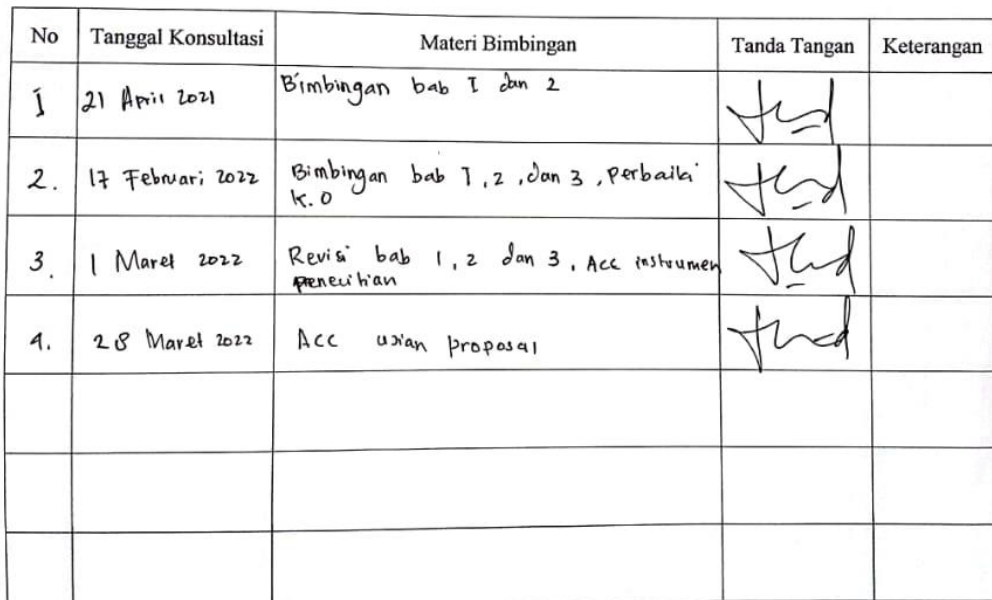 No Tanggal Konsultasi Materi Bimbingan Tanda Tangan Keterangan
1 21 April 2021 Bimbingan bab I dan 2
2. 17 Februari 2022 Bimbingan bab 1, 2, dan 3, perbaiki
K.O
3. 1 Maret 2022 Revisi bab 1, 2 dan 3, Acc instrumen
penelitian
4. 28 Maret 2022 Acc ujian proposal